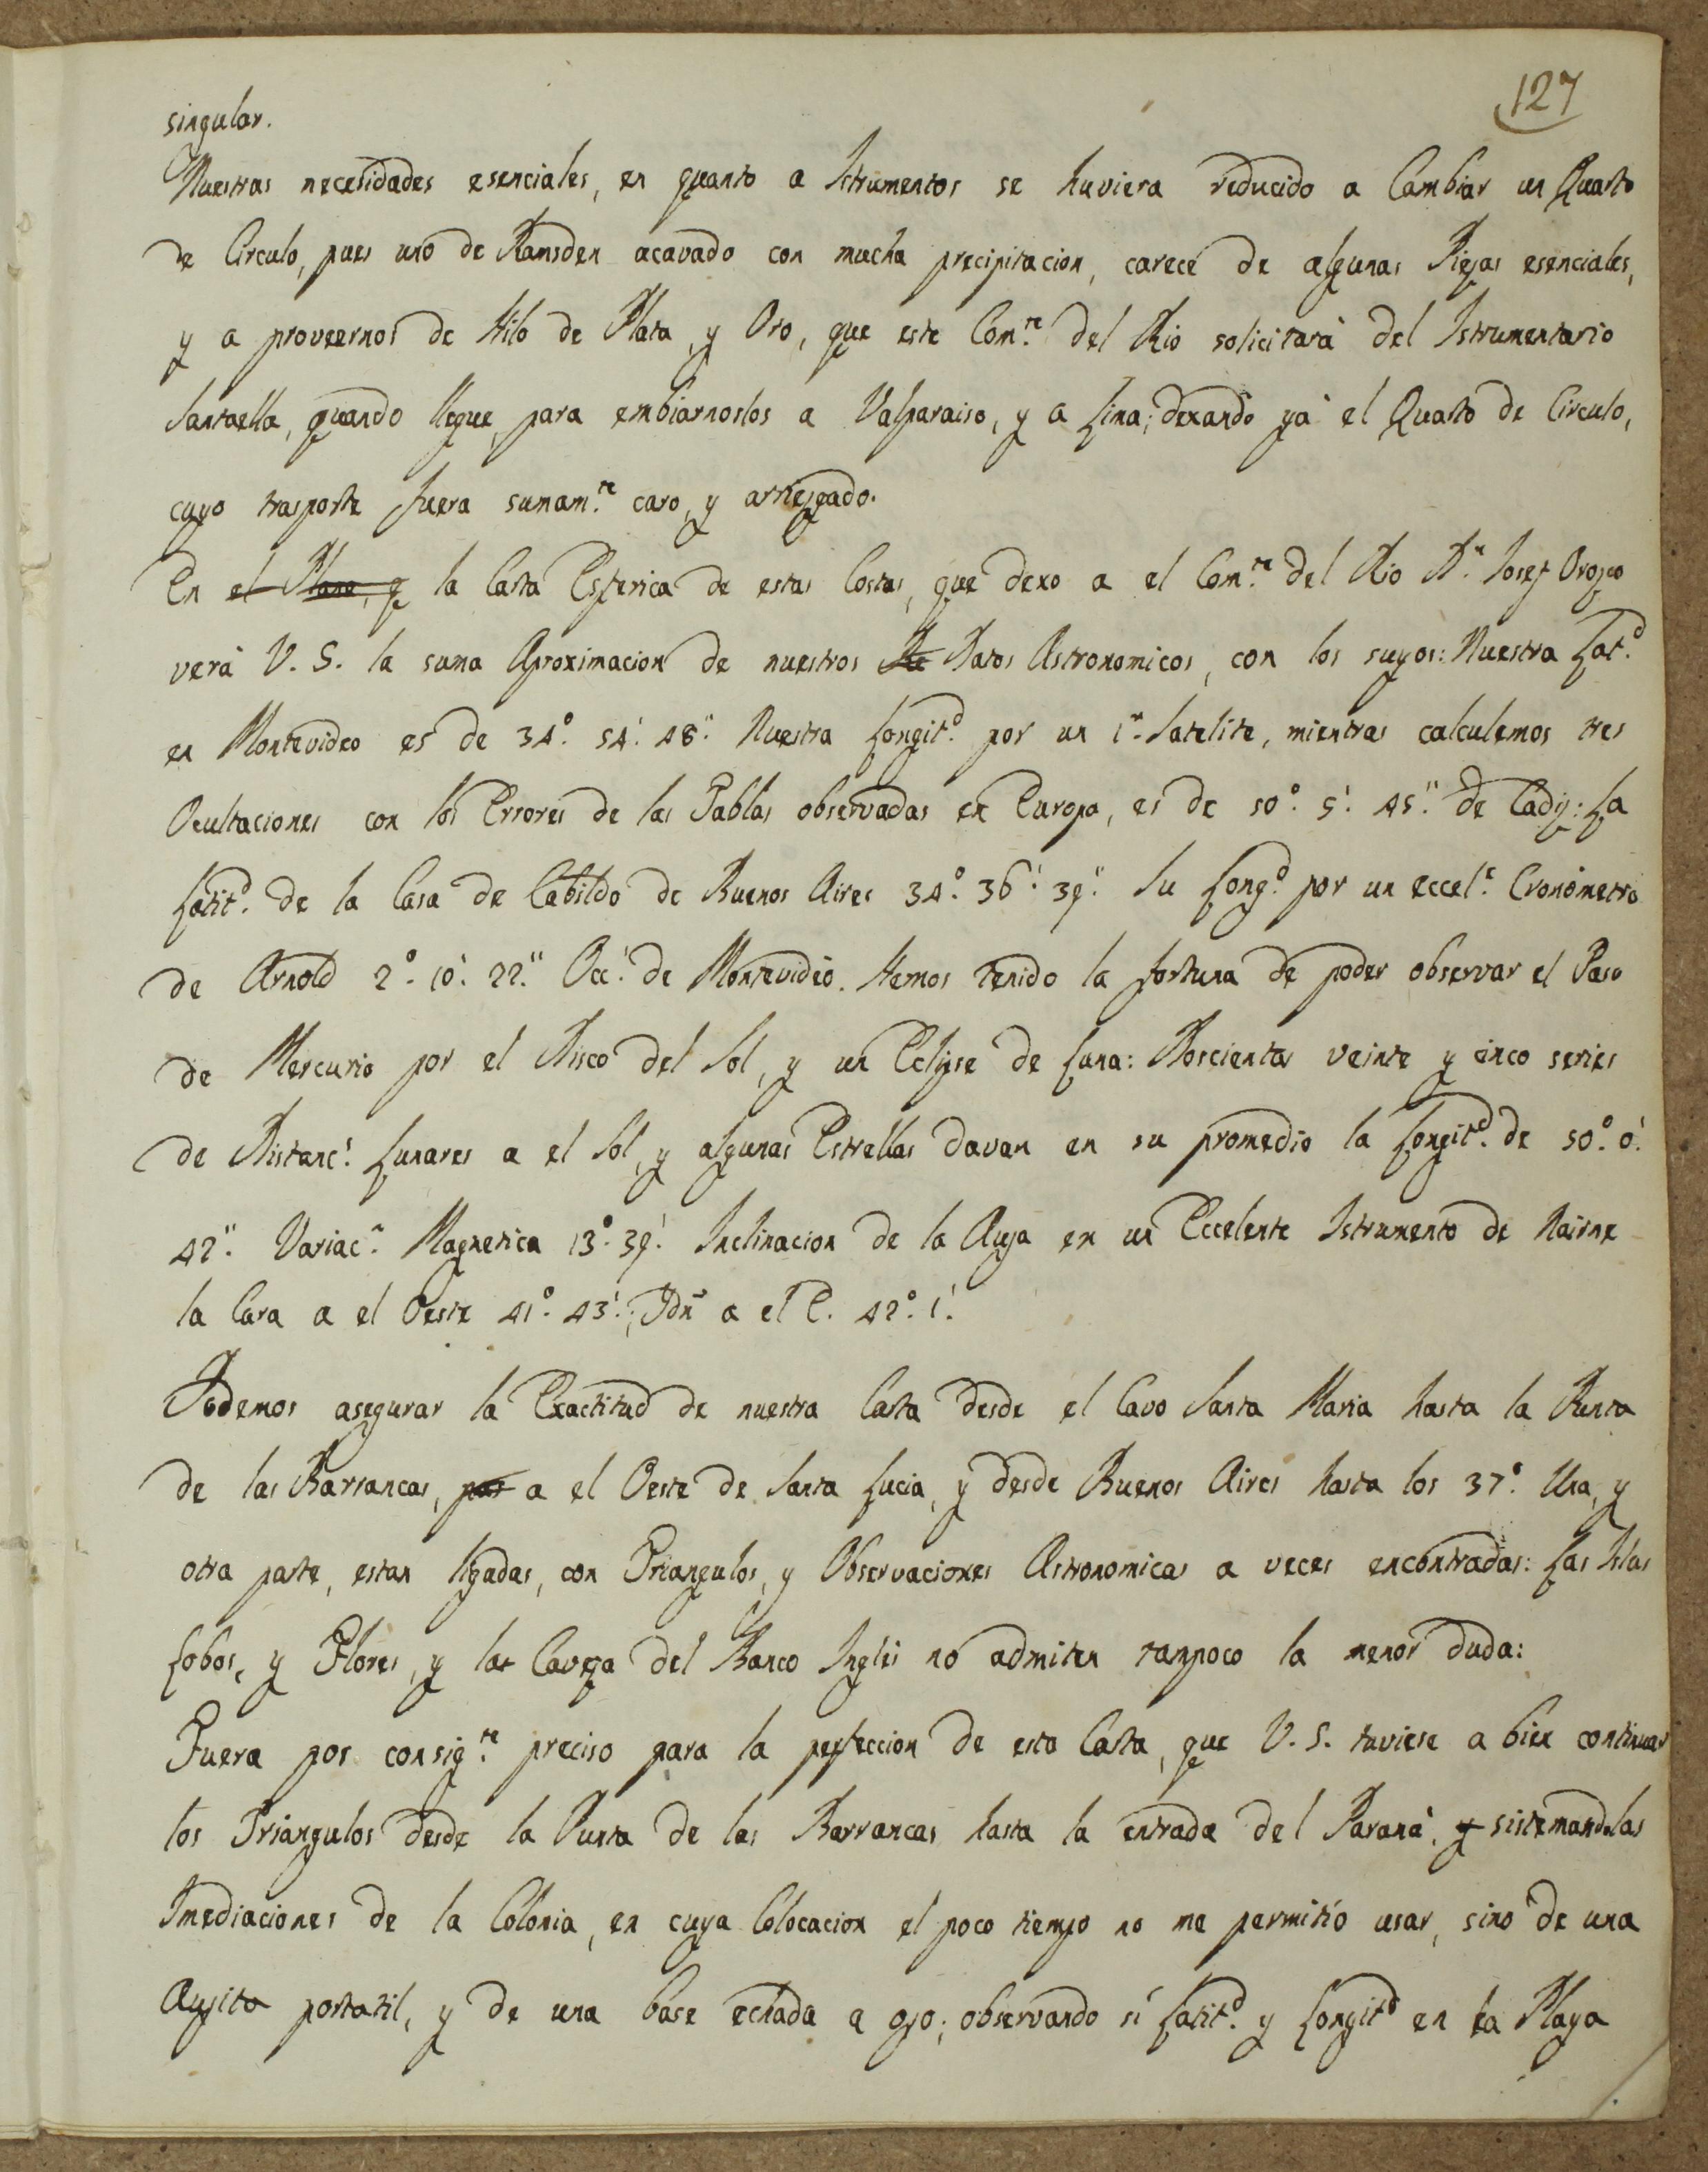 127
singular.
Nuestras necesidades esenciales, en quanto a Istrumentos se huviera reducido a Cambiar un Quarto
de Circulo, pues uno de Ramsden acavado con mucha precipitacion, carece de algunas Piezas esenciales,
y a proveernos de Hilo de Plata, y Oro, que este Com.te del Rio solicitará del Istrumentario
Santaella, quando llegue, para embiarnoslos a Valparaiso, y a Lima; dexando ya el Quarto de Circulo,
cuyo trasporte fuera sumam.te caro, y arriesgado.
En el Plano, y la Carta Esferica de estas Costas, que dexo a el Com.te del Rio D.n Josef Orozco
verá V. S. la suma Aproximacion de nuestros De Datos Astronomicos, con los suyos: Nuestra Lat.d
en Montevideo es de 34.° 54.' 48." Nuestra Longit.d por un 1.r Satelite, mientras calculemos tres
Ocultaciones con los Errores de las Tablas observadas en Europa, es de 50.° 5.' 45." de Cadiz: La
Latit.d de la Casa de Cabildo de Buenos Aires 34.° 36.' 39." Su Long.d por un eccel.e Cronómetro
de Arnold 2.° 10.' 22." Occ.l de Montevideo. Hemos tenido la fortuna de poder observar el Paso
de Mercurio por el Disco del Sol, y un Eclypse de Luna: Doscientas veinte y cinco series
de Distanc.s Lunares a el Sol, y algunas Estrellas davan en su promedio la Longit.d de 50.° 0.'
42." Variac.n Magnetica 13.° 39.' Inclinacion de la Auja en un Eccelente Istrumento de Nairne
la Cara a el Oeste 41.° 43.'; Idn a el E. 42.° 1.'
Podemos asegurar la Exactitud de nuestra Carta desde el Cavo Santa Maria hasta la Punta
de las Barrancas, por a el Oeste de Santa Lucia, y desde Buenos Aires hasta los 37.° Una, y
otra parte, estan ligadas, con Triangulos, y Observaciones Astronomicas a veces encontradas: Las Islas
Lobos, y Flores, y las Caveza del Banco Inglés no admiten tampoco la menor duda:
Fuera por consig.te preciso para la perfeccion de esta Carta, que V. S. tuviese a bien continuar
los Triangulos desde la Punta de las Barrancas hasta la entrada del Paraná, y sistemando las
Imediaciones de la Colonia, en cuya Colocacion el poco tiempo no me permitío usar, sino de una
Aujita portatil, y de una base echada a ojo; observando sí Latit.d y Longit.d en la Playa